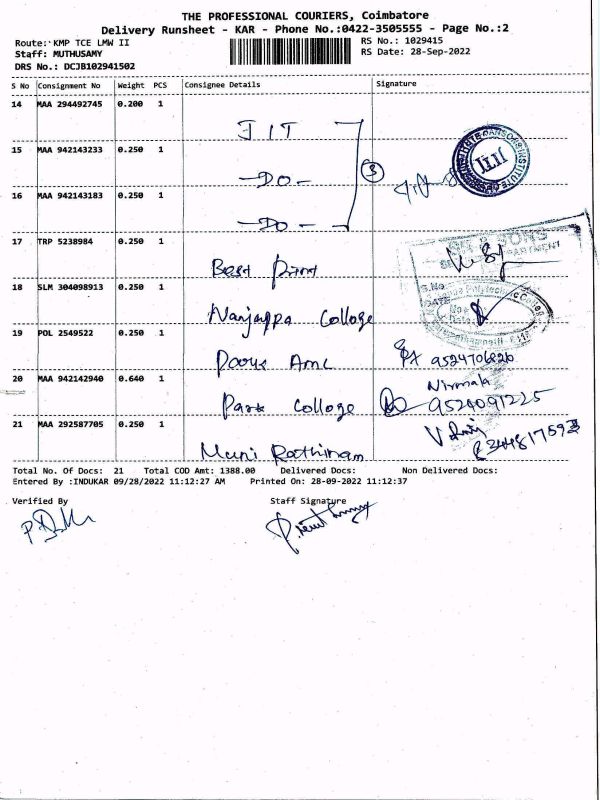 THE PROFESSIONAL COURIERS, Coimbatore
Delivery Runsheet - KAR - Phone No.:0422-3505555 - Page No.:2
Route: KMP TCE LMW II
RS No.: 1029415
Staff: MUTHUSAMY
RS Date: 28-Sep-2022
DRS No.: DCJB102941502
S No Consignment No Weight PCS Consignee Details Signature
14 MAA 294492745 0.200 1
JIT
15 MAA 942143233 0.250 1
-DO-
3
16 MAA 942143183 0.250 1
-DO-
17 TRP 5238984 0.250 1
Best Print
18 SLM 304098913 0.250 1
Nanjappa College
19 POL 2549522 0.250 1
9524706826
20 MAA 942142940 0.640 1
Nirmala
Park College
9524091225
21 MAA 292587705 0.250 1
Muni Rathinam
Total No. Of Docs: 21 Total COD Amt: 1388.00 Delivered Docs: Non Delivered Docs:
Entered By :INDUKAR 09/28/2022 11:12:27 AM Printed On: 28-09-2022 11:12:37
Verified By Staff Signature